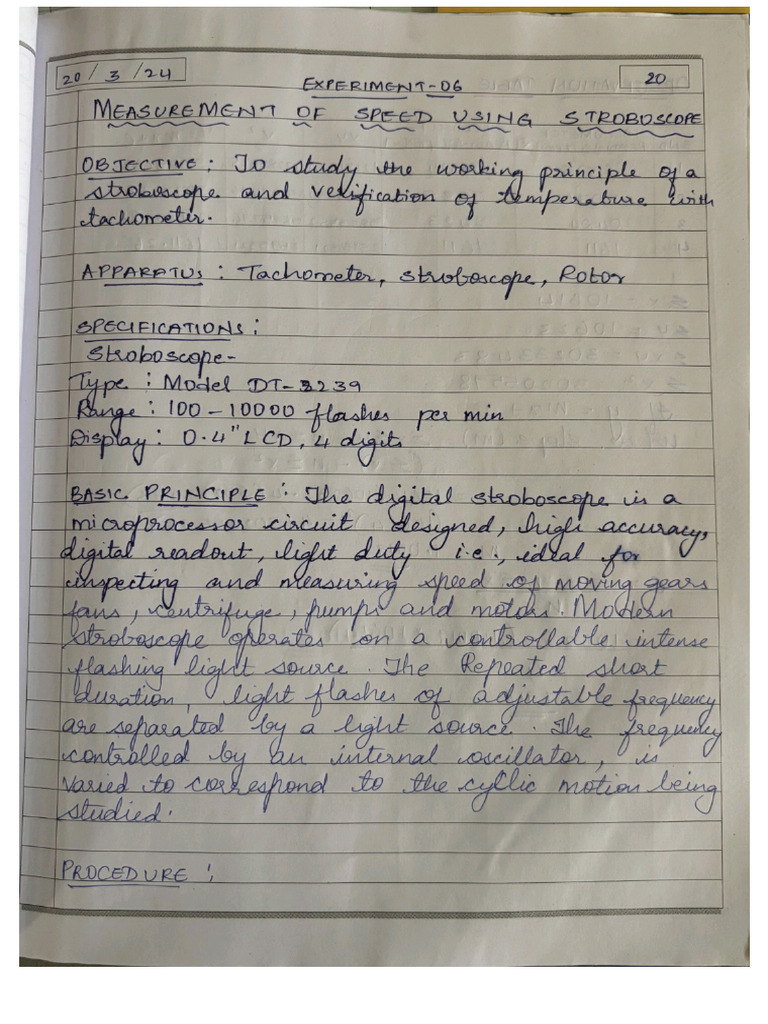 20/3/24
20
EXPERIMENT-06
MEASUREMENT OF SPEED USING STROBOSCOPE
OBJECTIVE: To study the working principle of a
stroboscope and verification of temperature with
tachometer.
APPARATUS: Tachometer, stroboscope, Rotor
SPECIFICATIONS:
Stroboscope-
Type: Model DT-3239
Range: 100-10000 flashes per min
Display: 0.4" LCD, 4 digits
BASIC PRINCIPLE: The digital stroboscope is a
microprocessor circuit designed, high accuracy,
digital readout, light duty i.e., ideal for
inspecting and measuring speed of moving gears
fans, centrifuge, pumps and motors. Modern
stroboscope operates on a controllable intense
flashing light source. The Repeated short
duration, light flashes of adjustable frequency
are separated by a light source. The frequency
controlled by an internal oscillator, is
varied to correspond to the cyllic motion being
studied.
PROCEDURE: